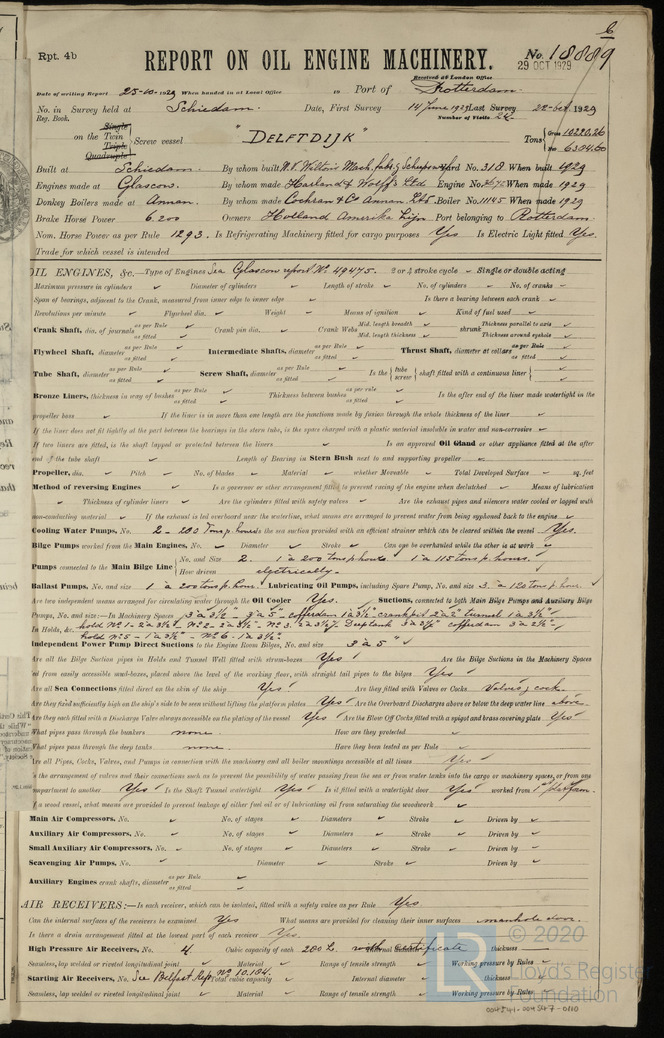 6
Rpt. 4b
REPORT ON OIL ENGINE MACHINERY.
No. 18889
29 OCT 1929
Received at London Office
Date of writing Report 25-10-1929 When handed in at Local Office 19 Port of Rotterdam.
No. in Survey held at Schiedam. Date, First Survey 14 June 1929 Last Survey 22-Oct. 1929
Reg. Book. Number of Visits 24
Single
on the Twin
Triple
Quadruple
Screw vessel "DELFTDIJK" Tons Gross 10220.26
Net 6304.60
Built at Schiedam. By whom built N.V. Wilton's Mach. fab. & Scheepswerf Yard No. 318 When built 1929
Engines made at Glasgow. By whom made Harland & Wolff's Ltd Engine No. When made 1929
Donkey Boilers made at Annan. By whom made Cochran & Co Annan Ltd. Boiler No. 11145 When made 1929
Brake Horse Power 6200 Owners Holland Amerika Lijn Port belonging to Rotterdam
Nom. Horse Power as per Rule 1293. Is Refrigerating Machinery fitted for cargo purposes Yes Is Electric Light fitted Yes.
Trade for which vessel is intended
OIL ENGINES, &c.—Type of Engines See Glasgow report No. 49475. 2 or 4 stroke cycle Single or double acting
Maximum pressure in cylinders Diameter of cylinders Length of stroke No. of cylinders No. of cranks
Span of bearings, adjacent to the Crank, measured from inner edge to inner edge Is there a bearing between each crank
Revolutions per minute Flywheel dia. Weight Means of ignition Kind of fuel used
Crank Shaft, dia. of journals as per Rule as fitted Crank pin dia. Crank Webs Mid. length breadth Mid. length thickness shrunk Thickness parallel to axis Thickness around eyehole
Flywheel Shaft, diameter as per Rule as fitted Intermediate Shafts, diameter as per Rule as fitted Thrust Shaft, diameter at collars as per Rule as fitted
Tube Shaft, diameter as per Rule as fitted Screw Shaft, diameter as per Rule as fitted Is the { tube screw } shaft fitted with a continuous liner {
Bronze Liners, thickness in way of bushes as per Rule as fitted Thickness between bushes as per rule as fitted Is the after end of the liner made watertight in the
propeller boss If the liner is in more than one length are the junctions made by fusion through the whole thickness of the liner
If the liner does not fit tightly at the part between the bearings in the stern tube, is the space charged with a plastic material insoluble in water and non-corrosive
If two liners are fitted, is the shaft lapped or protected between the liners Is an approved Oil Gland or other appliance fitted at the after
end of the tube shaft Length of Bearing in Stern Bush next to and supporting propeller
Propeller, dia. Pitch No. of blades Material whether Moveable Total Developed Surface sq. feet
Method of reversing Engines Is a governor or other arrangement fitted to prevent racing of the engine when declutched Means of lubrication
Thickness of cylinder liners Are the cylinders fitted with safety valves Are the exhaust pipes and silencers water cooled or lagged with
non-conducting material If the exhaust is led overboard near the waterline, what means are arranged to prevent water from being syphoned back to the engine
Cooling Water Pumps, No. 2 - 200 Tons p. hour Is the sea suction provided with an efficient strainer which can be cleared within the vessel Yes.
Bilge Pumps worked from the Main Engines, No. Diameter Stroke Can one be overhauled while the other is at work
Pumps connected to the Main Bilge Line { No. and Size 2. 1 à 200 tons p. hour 1 à 115 tons p. hour.
How driven electrically.
Ballast Pumps, No. and size 1 à 200 tons p. hour. Lubricating Oil Pumps, including Spare Pump, No. and size 3 à 120 tons p. hour.
Are two independent means arranged for circulating water through the Oil Cooler Yes. Suctions, connected to both Main Bilge Pumps and Auxiliary Bilge
Pumps, No. and size:—In Machinery Spaces 3 à 3½" - 3 à 5" - cofferdam 1 à 3½" crankpit 2 à 2" tunnel 1 à 3½"
In Holds, &c. hold No. 1 - 2 à 3½" No. 2 - 2 à 3½" - No. 3. 2 à 3½" Deeptank 3 à 3½" cofferdam 3 à 2½" -
hold No. 5 - 1 à 3½" - No. 6. 1 à 3½"
Independent Power Pump Direct Suctions to the Engine Room Bilges, No. and size 3 à 5"
Are all the Bilge Suction pipes in Holds and Tunnel Well fitted with strum-boxes Yes Are the Bilge Suctions in the Machinery Spaces
led from easily accessible mud-boxes, placed above the level of the working floor, with straight tail pipes to the bilges Yes
Are all Sea Connections fitted direct on the skin of the ship Yes Are they fitted with Valves or Cocks Valves & cock.
Are they fixed sufficiently high on the ship's side to be seen without lifting the platform plates Yes Are the Overboard Discharges above or below the deep water line above.
Are they each fitted with a Discharge Valve always accessible on the plating of the vessel Yes Are the Blow Off Cocks fitted with a spigot and brass covering plate Yes
What pipes pass through the bunkers none. How are they protected
What pipes pass through the deep tanks none. Have they been tested as per Rule
Are all Pipes, Cocks, Valves, and Pumps in connection with the machinery and all boiler mountings accessible at all times Yes
Is the arrangement of valves and their connections such as to prevent the possibility of water passing from the sea or from water tanks into the cargo or machinery spaces, or from one
compartment to another Yes Is the Shaft Tunnel watertight Yes Is it fitted with a watertight door Yes worked from 1st platform.
If a wood vessel, what means are provided to prevent leakage of either fuel oil or of lubricating oil from saturating the woodwork
Main Air Compressors, No. No. of stages Diameters Stroke Driven by
Auxiliary Air Compressors, No. No. of stages Diameters Stroke Driven by
Small Auxiliary Air Compressors, No. No. of stages Diameters Stroke Driven by
Scavenging Air Pumps, No. Diameter Stroke Driven by
Auxiliary Engines crank shafts, diameter as per Rule as fitted
AIR RECEIVERS:—Is each receiver, which can be isolated, fitted with a safety valve as per Rule Yes
Can the internal surfaces of the receivers be examined Yes What means are provided for cleaning their inner surfaces manhole door.
Is there a drain arrangement fitted at the lowest part of each receiver Yes.
High Pressure Air Receivers, No. 4. Cubic capacity of each 200 L. with certificate thickness
Seamless, lap welded or riveted longitudinal joint Material Range of tensile strength Working pressure by Rules
Starting Air Receivers, No. See Belfast Rep. No 10.104. Total cubic capacity Internal diameter thickness
Seamless, lap welded or riveted longitudinal joint Material Range of tensile strength Working pressure by Rules
© 2020
Lloyd's Register
Foundation
004541-004547-0110